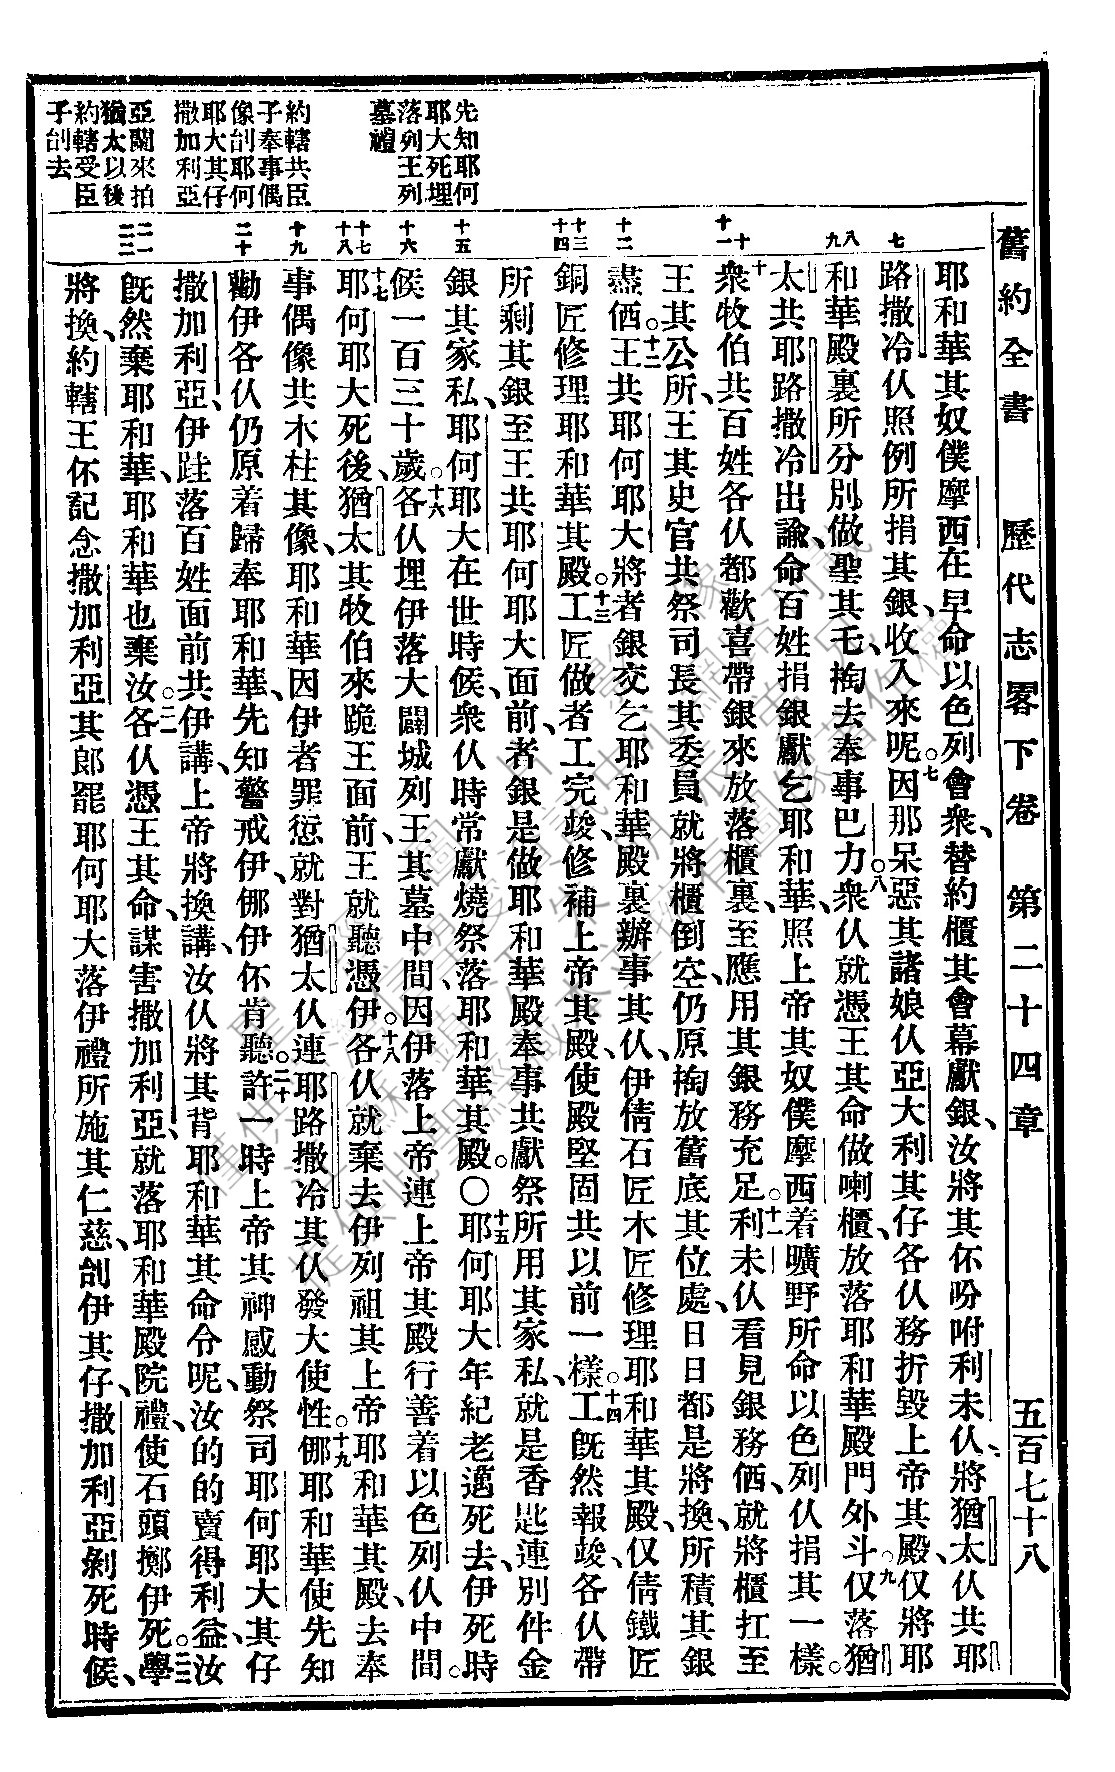 舊約全書 歷代志畧下卷 第二十四章 五百七十八
先知耶何
耶大死埋
落列王列
墓禮
約轄共臣
子奉事偶
像刣耶何
耶大其仔
撒加利亞
亞蘭來拍
猶太以後
約轄受臣
子刣去
七
八
九
十
十一
十二
十三
十四
十五
十六
十七
十八
十九
二十
二一
二二
耶和華其奴僕摩西在早命以色列會衆、替約櫃其會幕獻銀、汝將其伓吩咐利未仈、將猶太仈共耶
路撒冷仈照例所捐其銀、收入來呢。七因那呆惡其諸娘仈亞大利其仔各仈務折毀上帝其殿、仅將耶
和華殿裏所分別做聖其乇、掏去奉事巴力。八衆仈就憑王其命做喇櫃、放落耶和華殿門外斗。九仅落猶
太共耶路撒冷出諭、命百姓捐銀獻乞耶和華、照上帝其奴僕摩西着曠野所命以色列仈捐其一樣。
十衆牧伯共百姓各仈都歡喜帶銀來放落櫃裏、至應用其銀務充足。十一利未仈看見銀務価、就將櫃扛至
王其公所、王其史官共祭司長其委員就將櫃倒空、仍原掏放舊底其位處、日日都是將換、所積其銀
盡価。十二王共耶何耶大將者銀交乞耶和華殿裏辦事其仈、伊倩石匠木匠修理耶和華其殿、仅倩鐵匠
銅匠修理耶和華其殿。十三工匠做者工完竣、修補上帝其殿、使殿堅固共以前一樣。十四工旣然報竣、各仈帶
所剩其銀至王共耶何耶大面前、者銀是做耶和華殿奉事共獻祭所用其家私、就是香匙連別件金
銀其家私、耶何耶大在世時候、衆仈時常獻燒祭落耶和華其殿。〇十五耶何耶大年紀老邁死去、伊死時
候一百三十歲。十六各仈埋伊落大闢城列王其墓中間、因伊落上帝連上帝其殿行善着以色列仈中間。
十七耶何耶大死後、猶太其牧伯來跪王面前、王就聽憑伊。十八各仈就棄去伊列祖其上帝耶和華其殿、去奉
事偶像共木柱其像、耶和華因伊者罪愆、就對猶太仈連耶路撒冷其仈發大使性。十九𠲖耶和華使先知
勸伊各仈仍原着歸奉耶和華、先知警戒伊、𠲖伊伓肯聽。二十許一時上帝其神感動祭司耶何耶大其仔
撒加利亞、伊跬落百姓面前共伊講、上帝將換講、汝仈將其背耶和華其命令呢、汝的的賣得利益、汝
旣然棄耶和華、耶和華也棄汝。二一各仈憑王其命、謀害撒加利亞、就落耶和華殿院禮、使石頭擲伊死。二二學
將換、約轄王伓記念撒加利亞其郎罷耶何耶大落伊禮所施其仁慈、刣伊其仔、撒加利亞剝死時候、